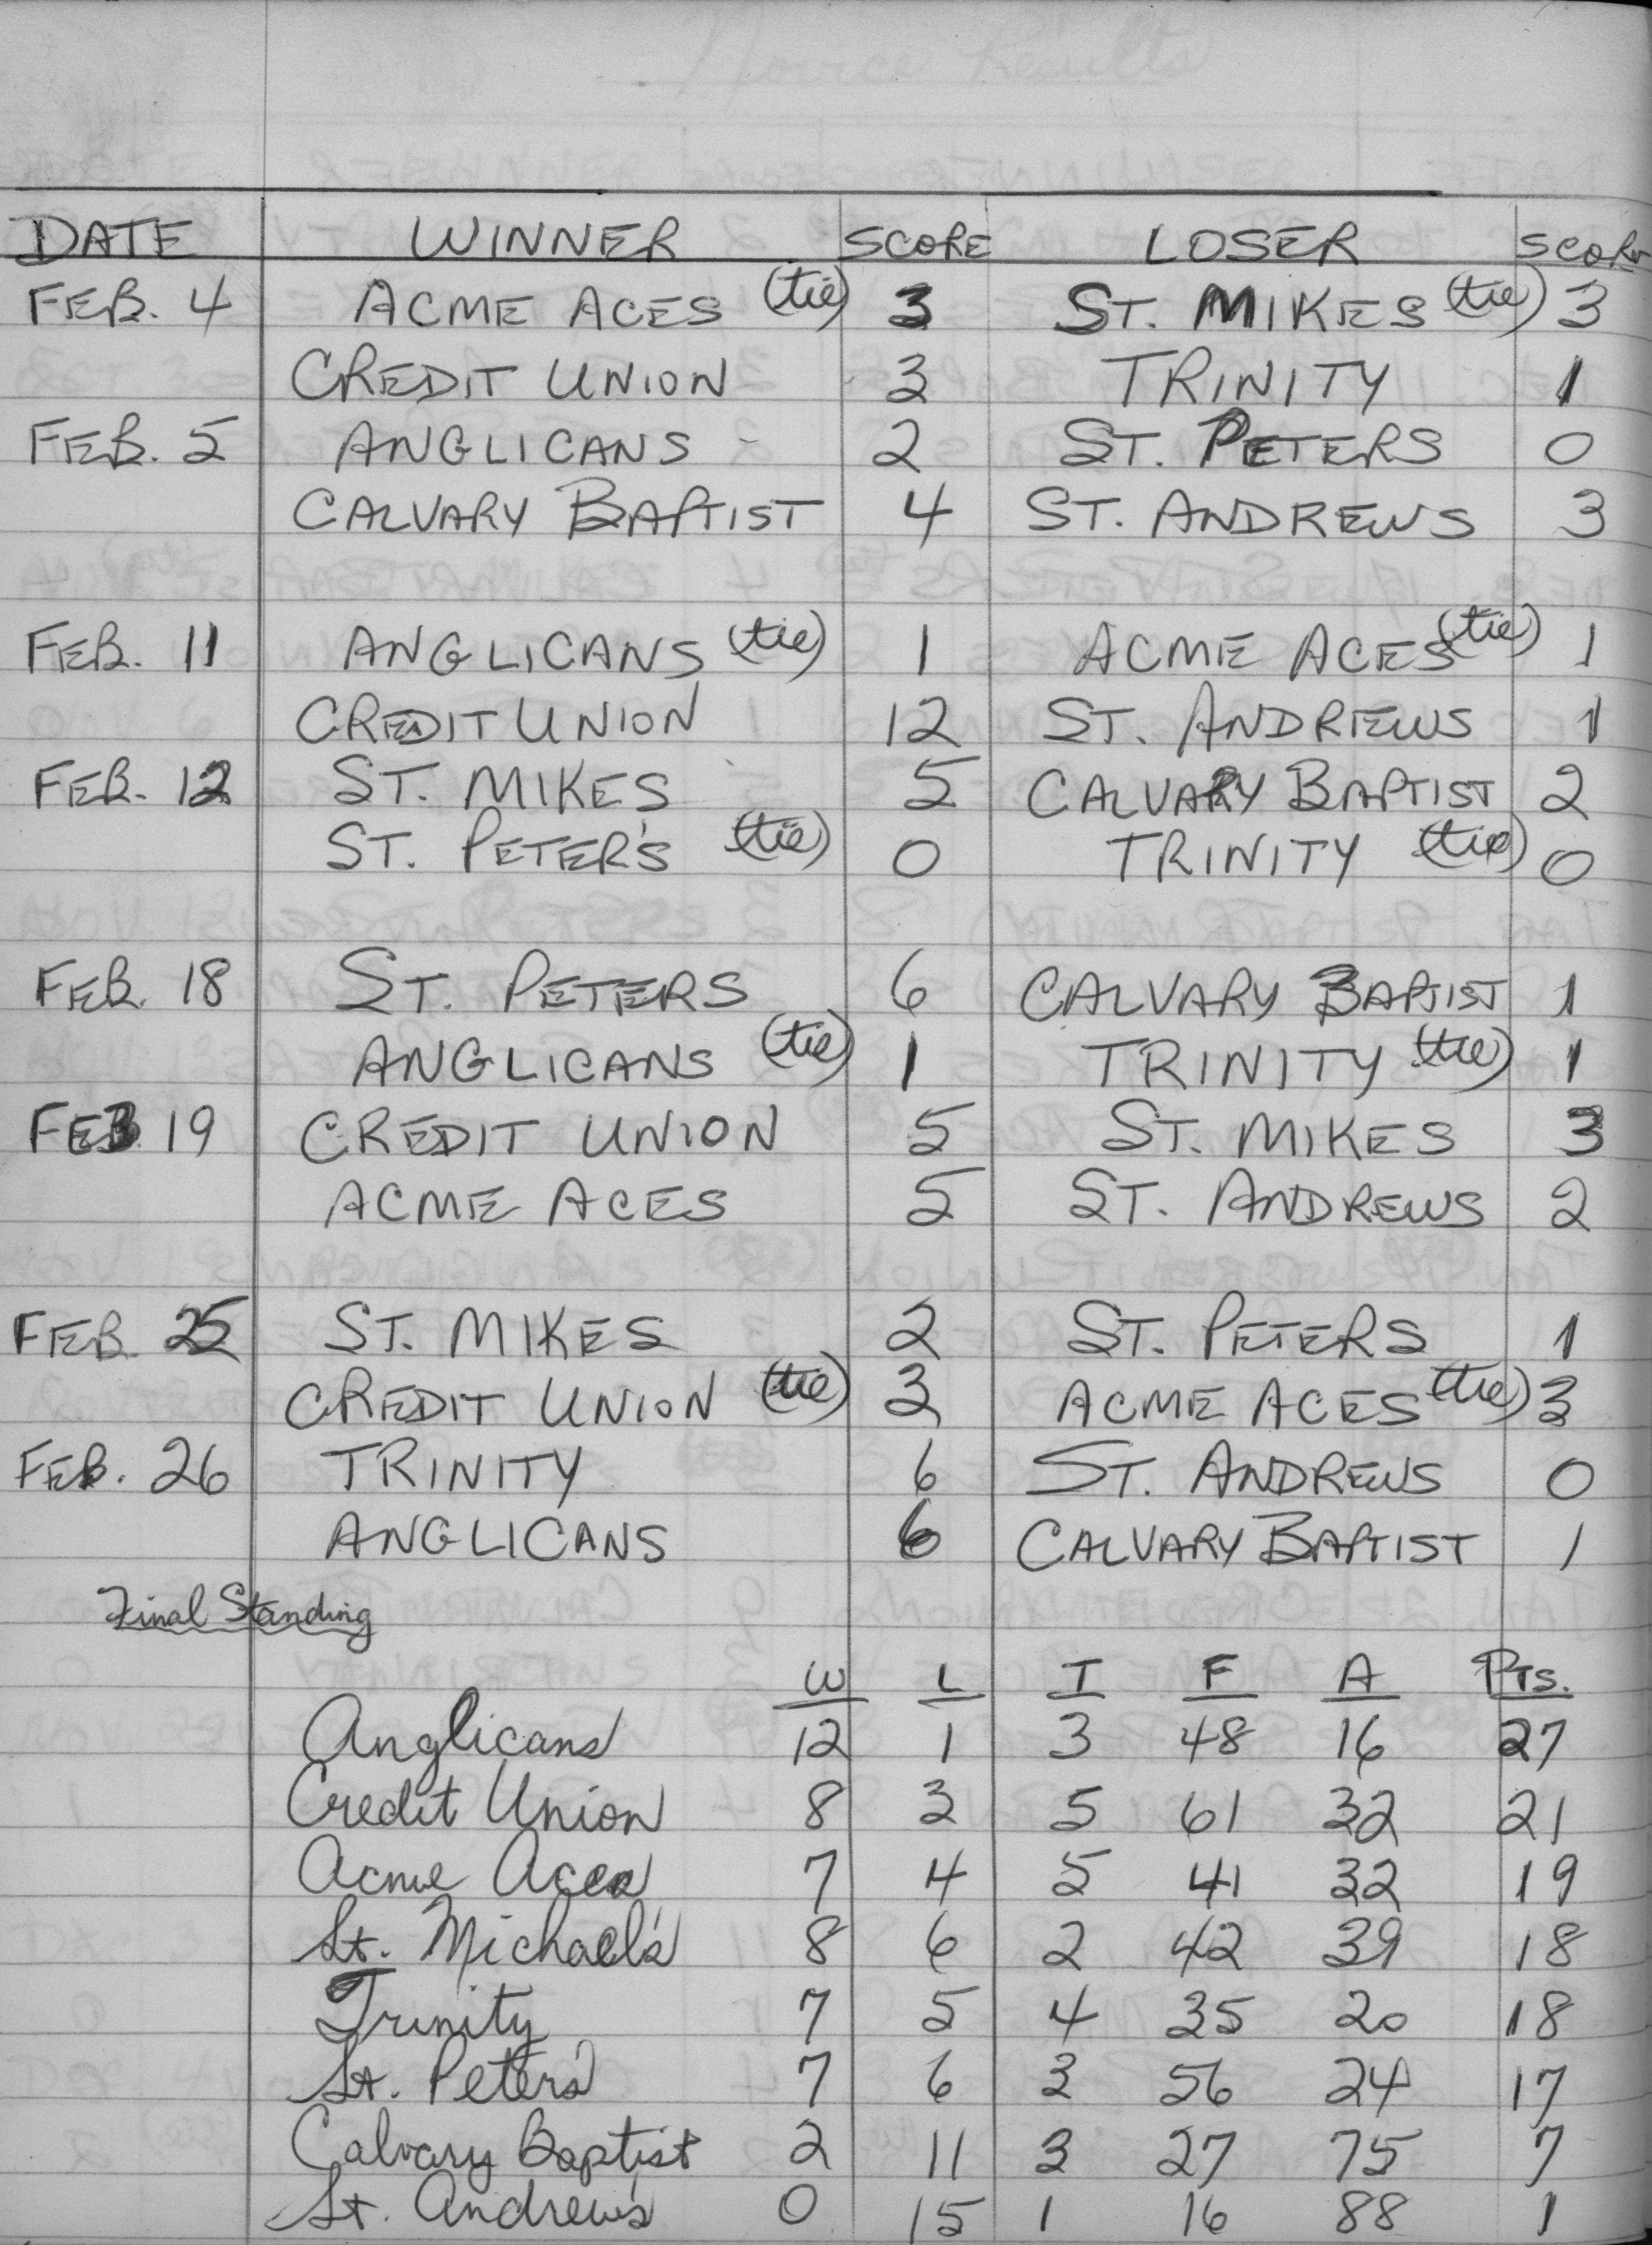 Novice Results
DATE WINNER SCORE LOSER SCORE
FEB. 4 ACME ACES (tie) 3 ST. MIKES (tie) 3
CREDIT UNION 3 TRINITY 1
FEB. 5 ANGLICANS - 2 ST. PETERS 0
CALVARY BAPTIST 4 ST. ANDREWS 3
FEB. 11 ANGLICANS (tie) 1 ACME ACES (tie) 1
CREDIT UNION 12 ST. ANDREWS 1
FEB. 12 ST. MIKES 5 CALVARY BAPTIST 2
ST. PETER'S (tie) 0 TRINITY (tie) 0
FEB. 18 ST. PETERS 6 CALVARY BAPTIST 1
ANGLICANS (tie) 1 TRINITY (tie) 1
FEB 19 CREDIT UNION 5 ST. MIKES 3
ACME ACES 5 ST. ANDREWS 2
FEB. 25 ST. MIKES 2 ST. PETERS 1
CREDIT UNION (tie) 3 ACME ACES (tie) 3
FEB. 26 TRINITY 6 ST. ANDREWS 0
ANGLICANS 6 CALVARY BAPTIST 1
Final Standing
W L T F A PTS.
Anglicans 12 1 3 48 16 27
Credit Union 8 3 5 61 32 21
Acme Aces 7 4 5 41 32 19
St. Michael's 8 6 2 42 39 18
Trinity 7 5 4 35 20 18
St. Peter's 7 6 3 56 24 17
Calvary Baptist 2 11 3 27 75 7
St. Andrew's 0 15 1 16 88 1